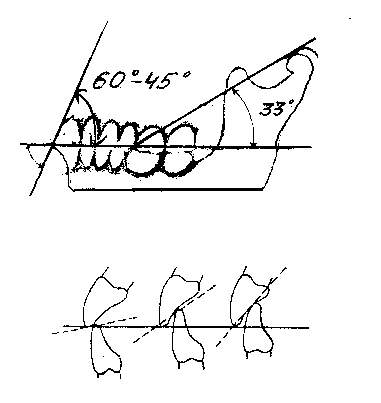 60°-45°
33°